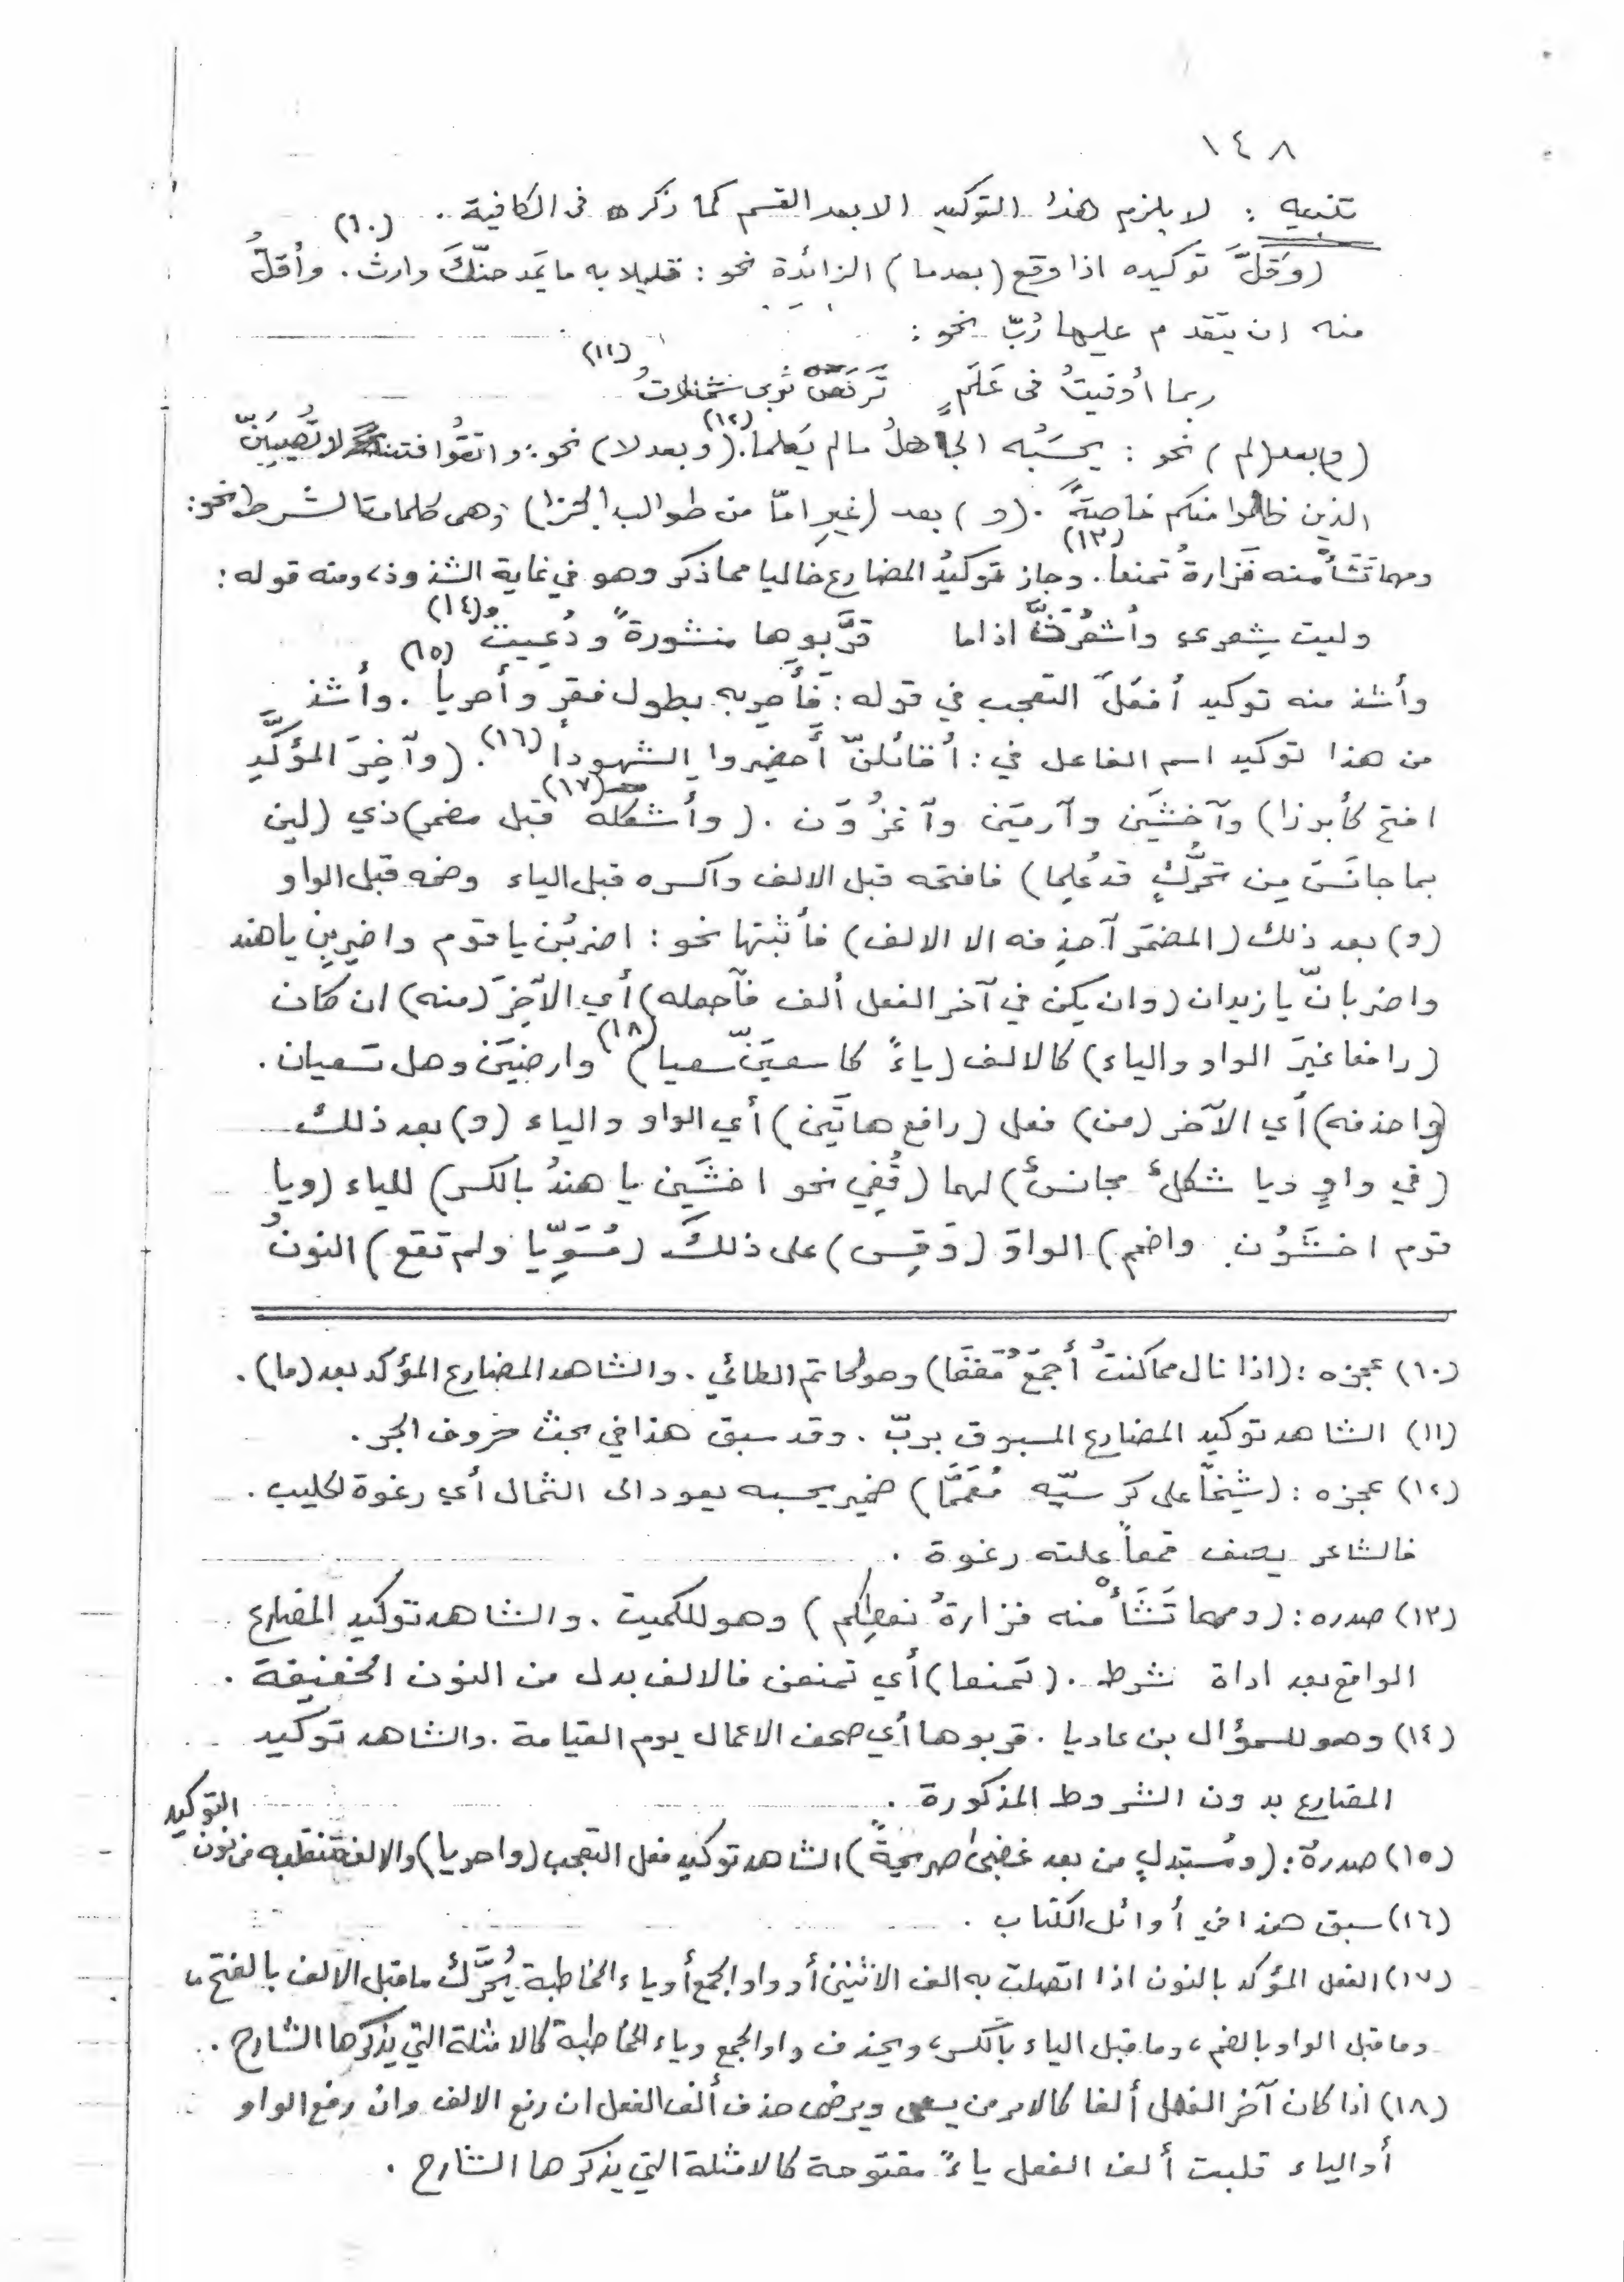 ١٤٨
تنبيه : لا يلزم هذا التوكيد الا بعد القسم كما ذكره فى الكافية .
(وَقَلَّ توكيده اذا وقع (بعد ما) الزائدة نحو : قليلا به ما يَمَدحنّكَ وارث . (١٠) وأقلُّ
منه ان يتقدم عليها رُبّ نحو :
ربما أوفيتُ فى عَلَمٍ تَرفَعَنْ ثوبى شمالاتُ (١١)
(و) بعد (لم) نحو : يحسَبُه الجاهلُ ما لم يَعلما . (١٢) (وبعد لا) نحو : واتقُوا فتنة لا تُصيبَنّ
الذين ظلموا منكم خاصةً . (و) بعد (غيرِ امّا من طوالب الجزا) وهى كلمات الشرط نحو :
ومهما تَشَأْ منه فَزارةُ تمنعا . (١٣) وجاز توكيدُ المضارع خاليا مما ذكر وهو في غاية الشذوذ، ومنه قوله :
وليت شِعرى وأشعُرَنَّ اذا ما قرَّبوها منشورةً ودُعيتُ (١٤)
وأشذ منه توكيد أفعَلَ التعجب في قوله : فَأَحرِ به بطول فقر وأحريا (١٥) . وأشذ
من هذا توكيد اسم الفاعل في : أقائلنّ أَحضِروا الشهودا (١٦) . (وآخِرَ المؤكَّدِ
افتح كأبرزا) وآخشَيَن وآرميَن وآغزُوَن . (وأشكله (١٧) قبل مضمر) ذي (لين
بما جانَسَ مِن تحرُّكٍ قد عُلِما) فافتحه قبل الالف واكسره قبل الياء وضمه قبل الواو
(و) بعد ذلك (المضمَرَ آحذِفنه الا الالف) فأثبتها نحو : اضربُن يا قوم واضربِن يا هند
واضربانّ يا زيدان (وان يكن في آخر الفعل ألف فآجعله) أي الآخِرَ (منه) ان كان
(رافعا غيرَ الواو والياء) كالالف (ياءً كاسعيَنّ سعيا) (١٨) وارضيَن وهل تسعيان .
(واحذفه) أي الآخر (من) فعل (رافع هاتَين) أي الواو والياء (و) بعد ذلك
(في واوٍ ويا شكلٌ مجانسٌ) لهما (قُفِي نحو اخشَيِن يا هندُ بالكسر) للياء (ويا
قوم اخشَوُن واضمم) الواوَ (وَقِس) على ذلك (مُسَوِّيا ولم تقع) النونُ
(١٠) عجزه : (اذا نال مما كنتُ أَجمَعُ مَغنَما) وهو لحاتم الطائي . والشاهد المضارع المؤكد بعد (ما) .
(١١) الشاهد توكيد المضارع المسبوق بربّ . وقد سبق هذا في بحث حروف الجر .
(١٢) عجزه : (شَيخًا على كرسيّه مُعَمَّمَا) ضمير يحسبه يعود الى الثمال أي رغوة الحليب .
فالشاعر يصف قمعاً علته رغوة .
(١٣) صدره : (ومهما تَشَأْ منه فزارةُ نعطكم) وهو للكميت . والشاهد توكيد المضارع
الواقع بعد اداة شرط . (تمنعا) أي تمنعن فالالف بدل من النون الخفيفة .
(١٤) وهو للسموأل بن عاديا . قربوها أي صحف الاعمال يوم القيامة . والشاهد توكيد
المضارع بدون الشروط المذكورة .
(١٥) صدرهُ : (ومُستبدلٍ من بعد غضبىٰ صريمةً) الشاهد توكيد فعل التعجب (واحريا) والالف منقلبه من نون التوكيد
(١٦) سبق هذا في أوائل الكتاب .
(١٧) الفعل المؤكد بالنون اذا اتصلت به الف الاثنين أو واو الجمع أو ياء المخاطبة يُحَرَّك ما قبل الالف بالفتح ،
وما قبل الواو بالضم ، وما قبل الياء بالكسر ، ويحذف واو الجمع وياء المخاطبة كالامثلة التي يذكرها الشارح .
(١٨) اذا كان آخر الفعل ألفا كالامر من يسعى ويرضى حذف ألف الفعل ان رفع الالف وان رفع الواو
أو الياء قلبت ألف الفعل ياءً مفتوحة كالامثلة التي يذكرها الشارح .